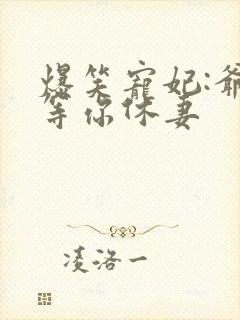 爆笑寵妃:爺
等你休妻
凌洛一